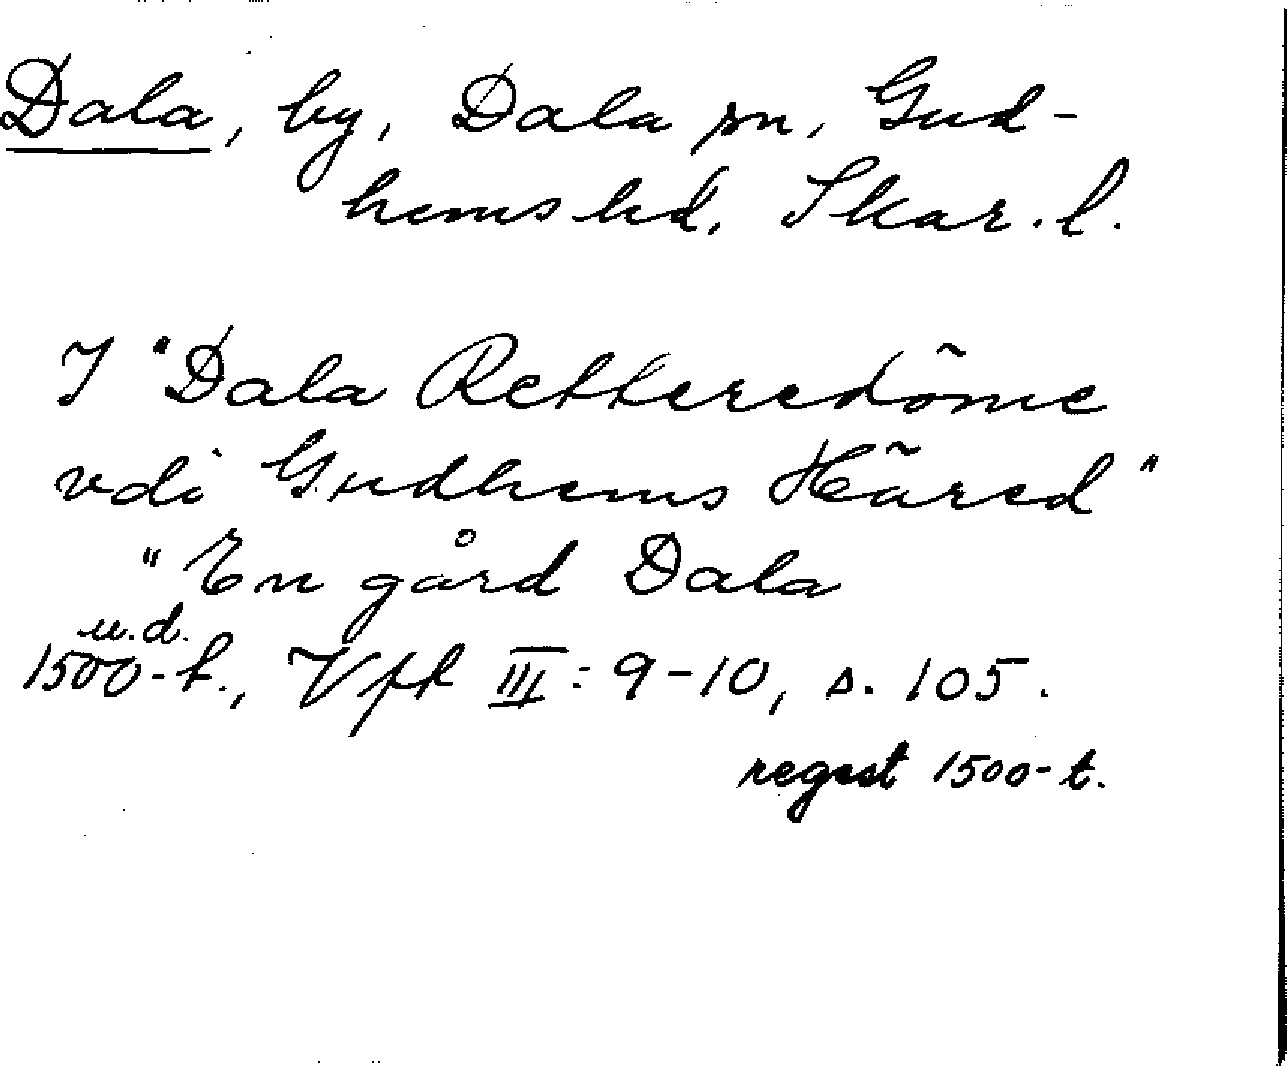 Dala, by, Dala sn, Gud-
hems hd, Skar. l.
I "Dala Retteredõme
vdi Gudhems Hãred"
"En gård Dala
u.d.
1500-t., Vfk III: 9-10, s. 105.
regest 1500-t.